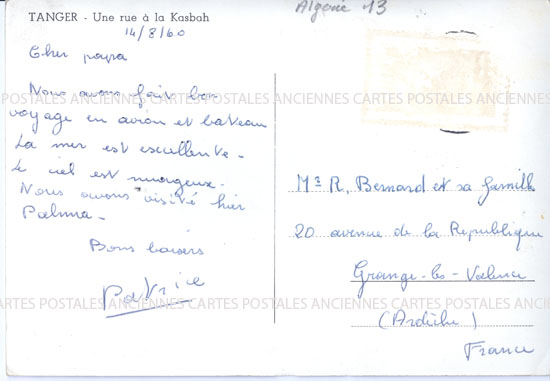 TANGER - Une rue à la Kasbah
Algérie 13
14/8/60
Cher papa
Nous avons fait bon
voyage en avion et bateau
La mer est excellente -
Le ciel est nuageux.
Nous avons visité hier
Palma -
Bons baisers
Patrice
Mr R. Bernard et sa famille
20 avenue de la République
Granges-les-Valence
(Ardèche)
France
CARTES POSTALES ANCIENNES CARTES POSTALES ANCIENNES CARTES POSTALES ANCIENNES
CARTES POSTALES ANCIENNES CARTES POSTALES ANCIENNES CARTES POSTALES ANCIENNES